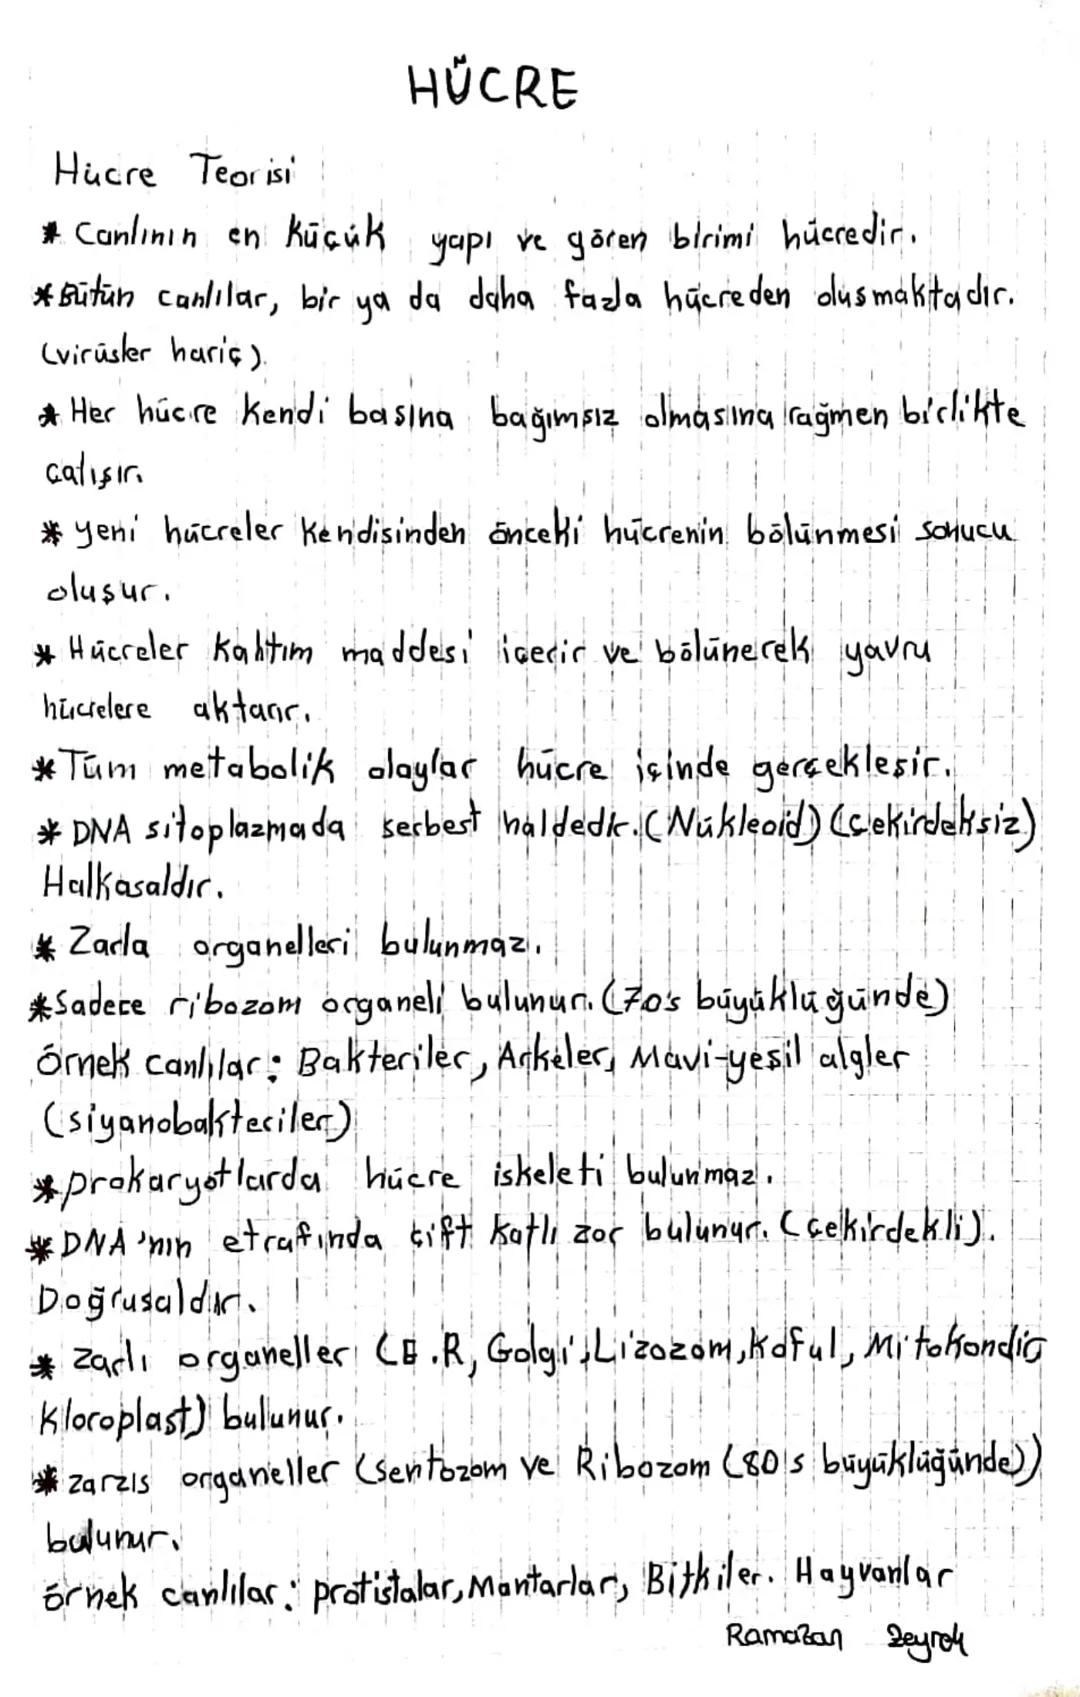 HÜCRE
Hücre Teorisi
* Canlının en küçük yapı ve gören birimi hücredir.
*Bütün canlılar, bir ya da daha fazla hücreden olusmaktadır.
(virüsler hariç).
* Her hücre kendi basına bağımsız olmasına rağmen birlikte
çalışır.
* yeni hücreler kendisinden önceki hücrenin bölünmesi sonucu
oluşur.
* Hücreler kalıtım maddesi içerir ve bölünerek yavru
hücrelere aktarır.
* Tüm metabolik olaylar hücre içinde gerçekleşir.
* DNA sitoplazmada serbest haldedir. (Nükleoid) (çekirdeksiz)
Halkasaldır.
* Zarla organelleri bulunmaz.
*Sadece ribozom organeli bulunur. (70's büyüklüğünde)
Örnek canlılar: Bakteriler, Arkeler, Mavi-yeşil algler
(siyanobakteriler)
*prokaryotlarda hücre iskeleti bulunmaz.
* DNA'nın etrafında çift katlı zar bulunur. (çekirdekli).
Doğrusaldır.
* zarlı organeller (E.R, Golgi, Lizozom, Koful, Mitokondri
Kloroplast) bulunur.
* zarzıs organeller (sentozom ve Ribozom (80's büyüklüğünde))
bulunur.
örnek canlılar: protistalar, Mantarlar, Bitkiler. Hayvanlar
Ramazan Zeyrek